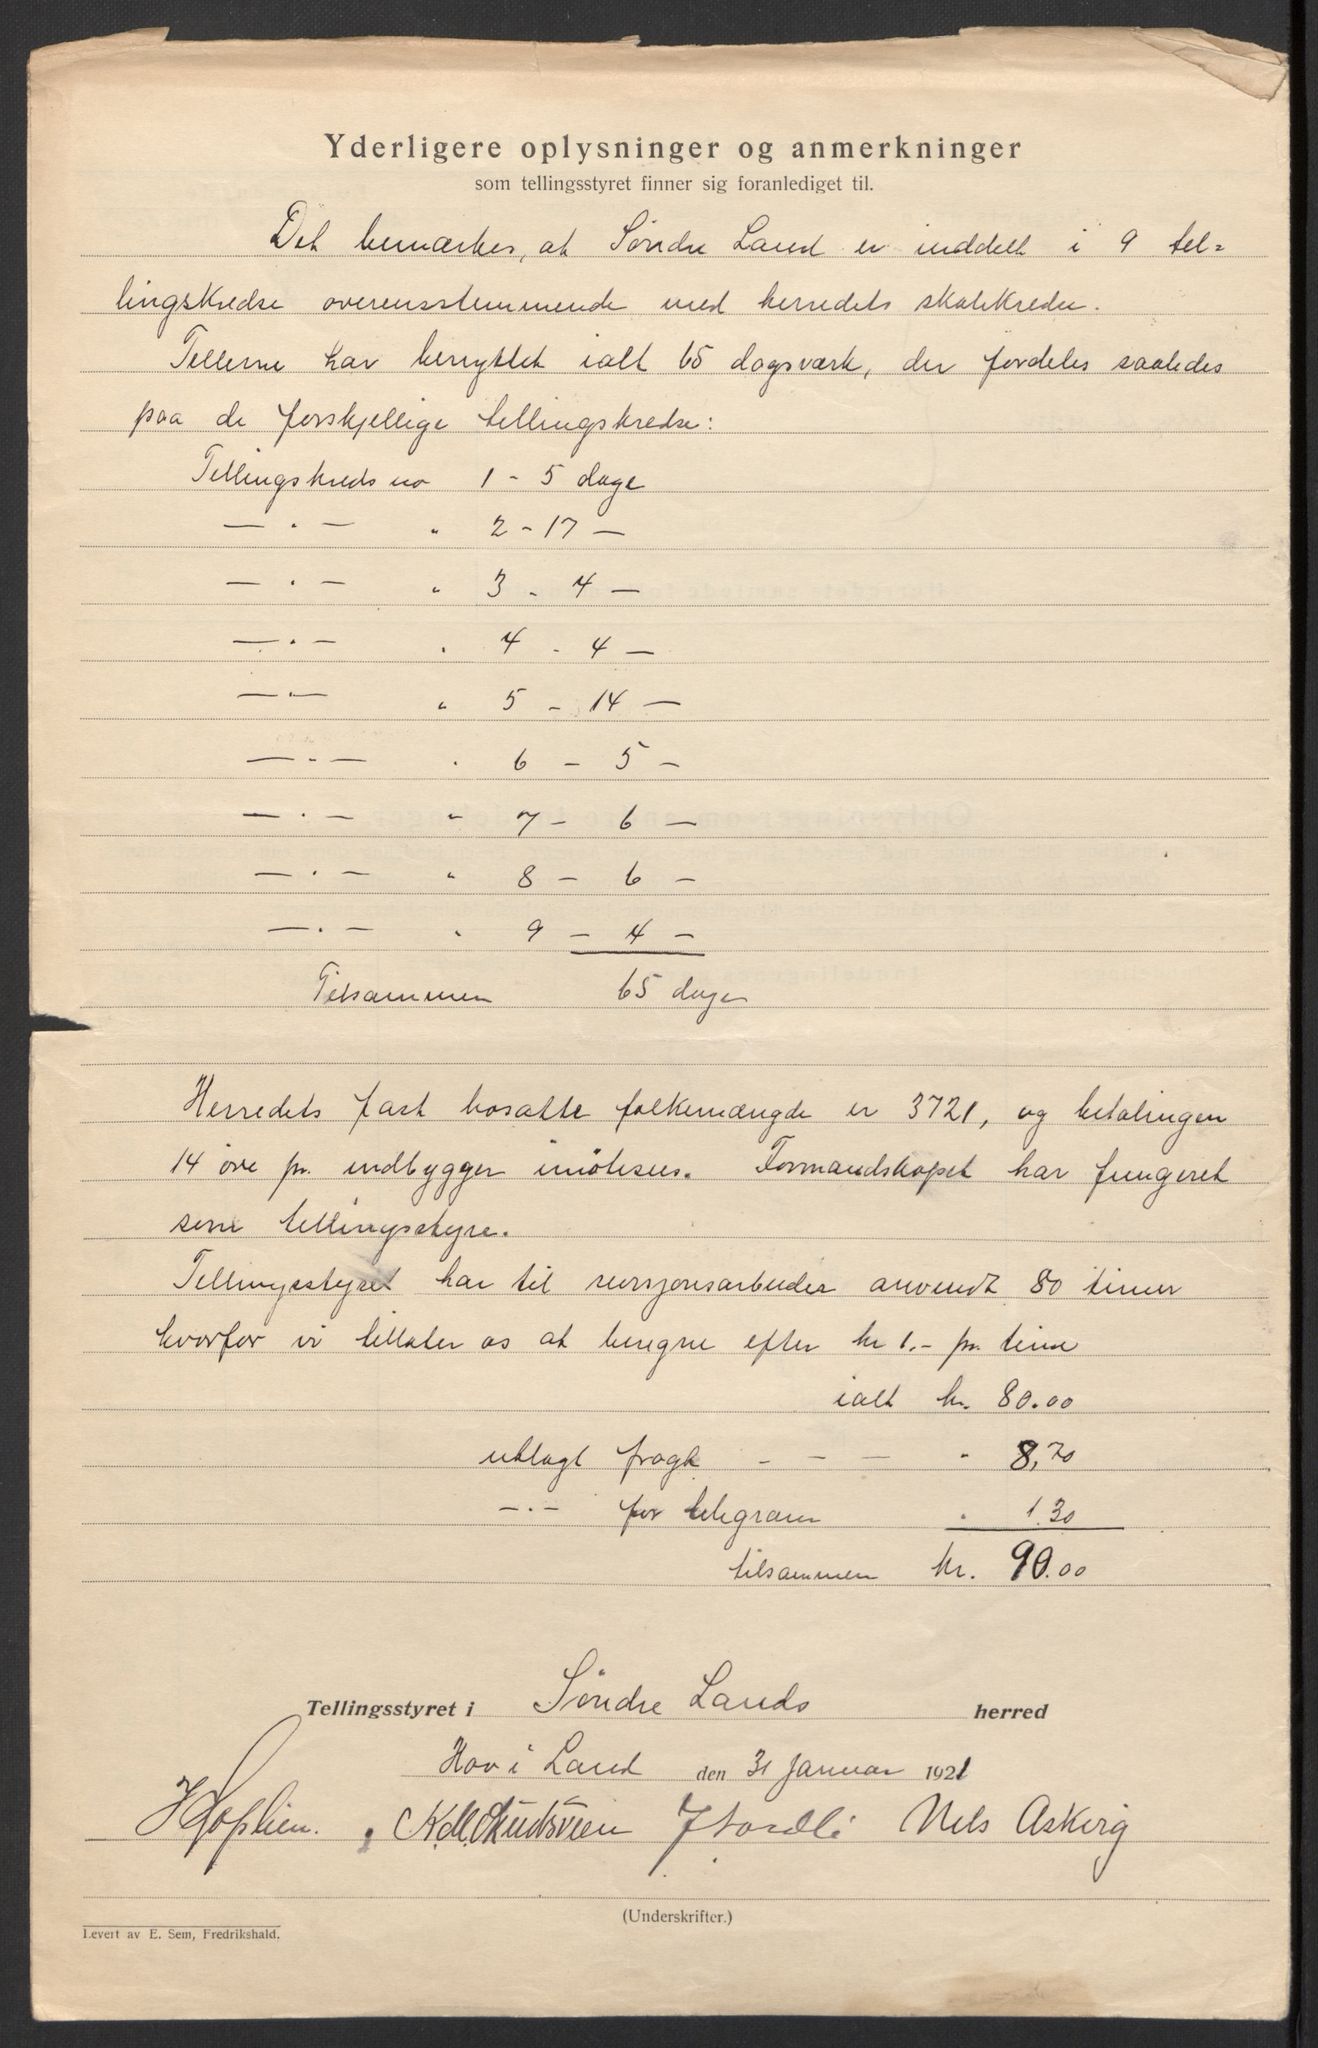 Yderligere oplysninger og anmerkninger
som tellingsstyret finner sig foranlediget til.
Det bemærkes, at Søndre Land er inddelt i 9 tel=
lingskredse overensstemmende med herredets skolekredse.
Tellerne har benyttet ialt 65 dagsværk, der fordeles saaledes
paa de forskjellige tellingskredse:
Tellingskreds no 1 - 5 dage
— " — " 2 - 17 —
— " — " 3 - 4 —
— " — " 4 - 4 —
— " — " 5 - 14 —
— " — " 6 - 5 —
— " — " 7 - 6 —
— " — " 8 - 6 —
— " — " 9 - 4 —
Tilsammen 65 dage
Herredets fast bosatte folkemængde er 3721, og betalingen
14 øre pr. indbygger imøtesees. Formandskapet har fungeret
som tellingsstyre.
Tellingsstyret har til revisjonsarbeider anvendt 80 timer
hvorfor vi tillater os at beregne efter kr 1.- pr. time
ialt kr. 80.00
utlagt fragt - - - " 8,70
— " — for telegram " 1.30
tilsammen kr. 90.00
Tellingsstyret i Søndre Lands herred
Hov i Land den 31 Januar 1921
Nels Askvig
(Underskrifter.)
Levert av E. Sem, Fredrikshald.